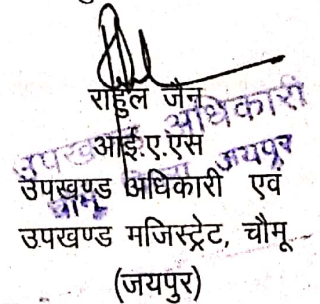 राहुल जैन
आई.ए.एस
उपखण्ड अधिकारी एवं
उपखण्ड मजिस्ट्रेट, चौमू
(जयपुर)
उपखण्ड अधिकारी
चौमू जिला जयपुर